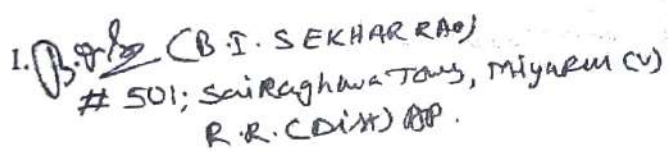 1. (B.I. SEKHAR RAO)
# 501; Sai Raghava Towes, Miyapur (V)
R.R. (Dist) AP.